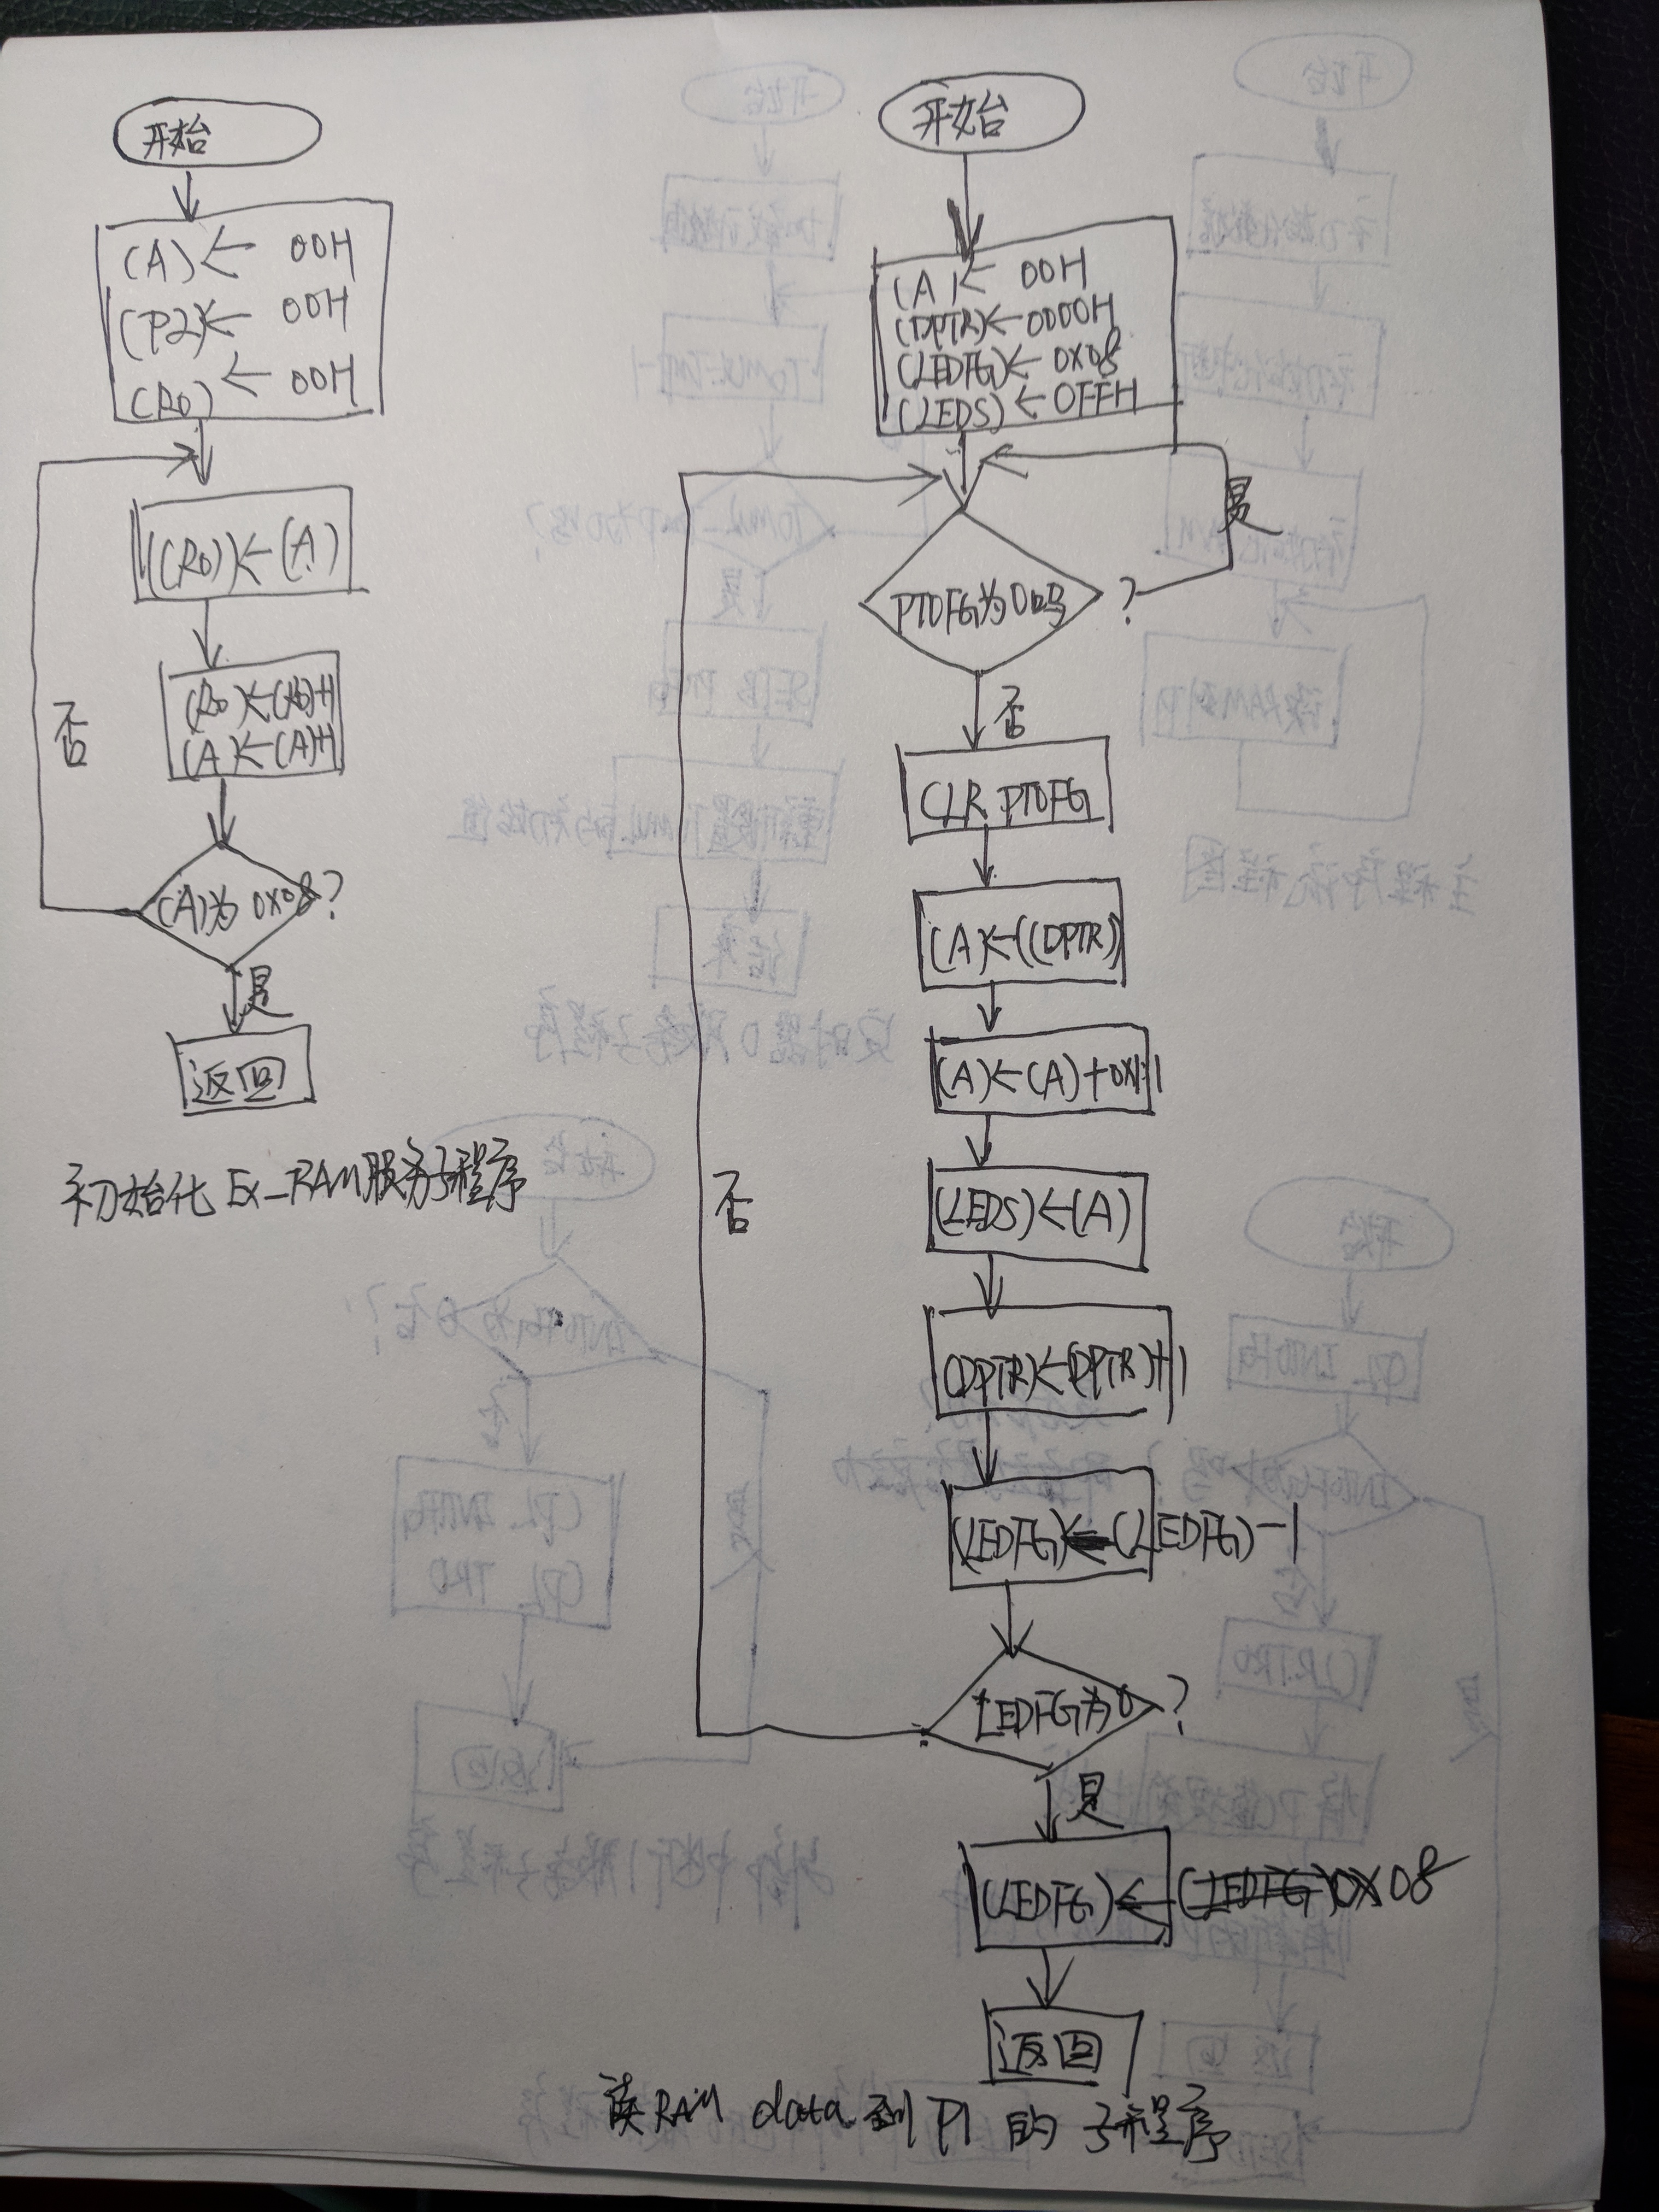 开始
(A)← 00H
(P2)← 00H
(R0) ← 00H
((R0))←(A)
(R0)←(R0)+1
(A)←(A)+1
否
(A)为 0x08?
是
返回
初始化 Ex_RAM服务子程序
开始
(A)← 00H
(DPTR)←0000H
(LEDFG)← 0x08
(LEDS)← 0FFH
是
PT0FG为0吗?
否
CLR PT0FG
(A)←((DPTR))
(LEDS)←(A)
否
(DPTR)←(DPTR)+1
(LEDFG)←(LEDFG)-1
LEDFG为0?
是
(LEDFG)← 0x08
返回
读RAM data 到 P1 的 子程序